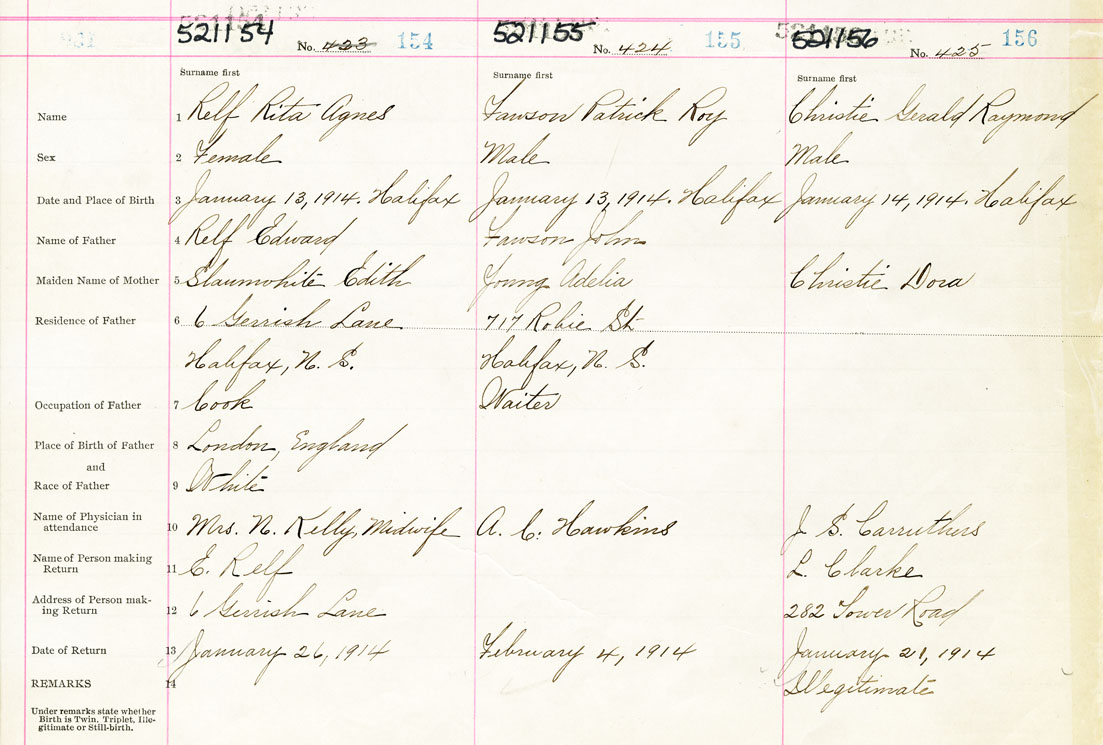 521154 No. 423 154 521155 No. 424 155 521156 No. 425 156
Surname first Surname first Surname first
Name 1 Relf Rita Agnes Fawson Patrick Roy Christie Gerald Raymond
Sex 2 Female Male Male
Date and Place of Birth 3 January 13, 1914. Halifax January 13, 1914. Halifax January 14, 1914. Halifax
Name of Father 4 Relf Edward Fawson John
Maiden Name of Mother 5 Slaumwhite Edith Young Adelia Christie Dora
Residence of Father 6 6 Gerrish Lane 717 Robie St
Halifax, N. S. Halifax, N. S.
Occupation of Father 7 Cook Waiter
Place of Birth of Father 8 London, England
and
Race of Father 9 White
Name of Physician in
attendance 10 Mrs. N. Kelly, Midwife A. C. Hawkins J. S. Carruthers
Name of Person making
Return 11 E. Relf L. Clarke
Address of Person mak-
ing Return 12 6 Gerrish Lane 282 Tower Road
Date of Return 13 January 26, 1914 February 4, 1914 January 21, 1914
REMARKS 14 Illegitimate
Under remarks state whether
Birth is Twin, Triplet, Ille-
gitimate or Still-birth.